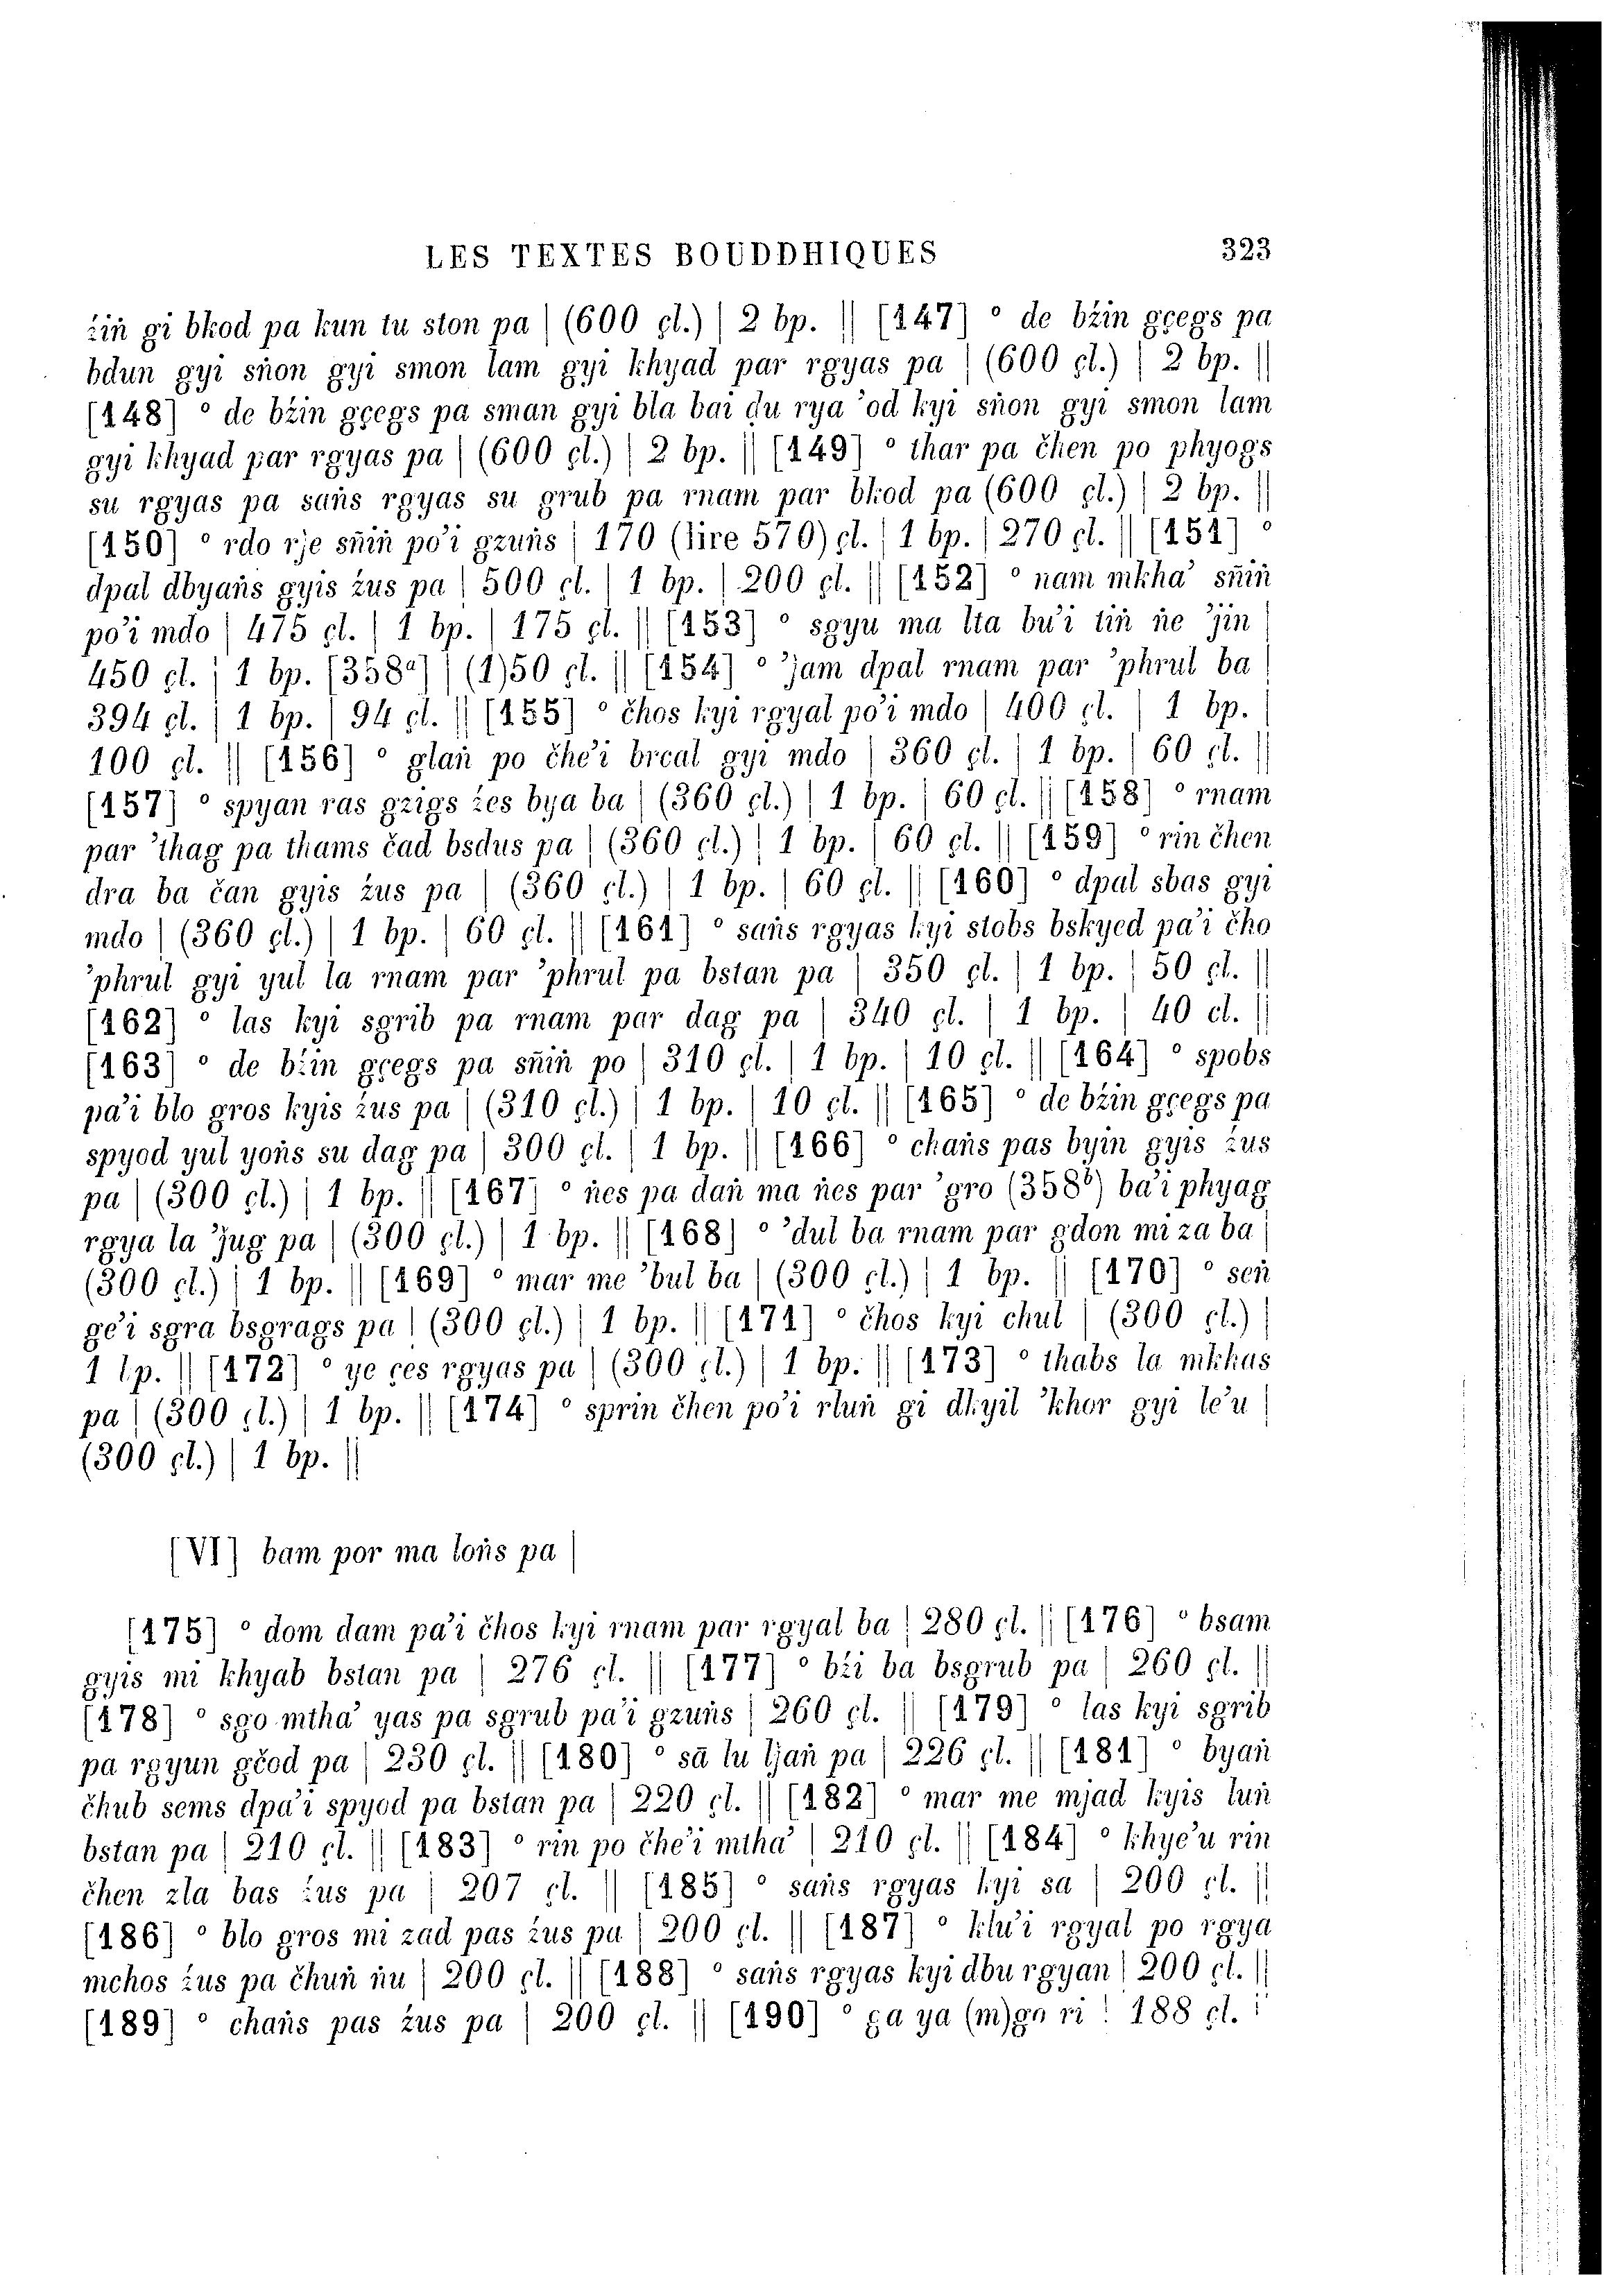 LES TEXTES BOUDDHIQUES 323
žiṅ gi bkod pa kun tu ston pa | (600 çl.) | 2 bp. || [147] ° de bžin gçegs pa
bdun gyi sṅon gyi smon lam gyi khyad par rgyas pa | (600 çl.) | 2 bp. ||
[148] ° de bžin gçegs pa sman gyi bla bai ḍu rya ’od kyi sṅon gyi smon lam
gyi khyad par rgyas pa | (600 çl.) | 2 bp. || [149] ° thar pa čhen po phyogs
su rgyas pa saṅs rgyas su grub pa rnam par bkod pa (600 çl.) | 2 bp. ||
[150] ° rdo rje sñiṅ po’i gzuṅs | 170 (lire 570) çl. | 1 bp. | 270 çl. || [151] °
dpal dbyaṅs gyis žus pa | 500 çl. | 1 bp. | 200 çl. || [152] ° nam mkha’ sñiṅ
po’i mdo | 475 çl. | 1 bp. | 175 çl. || [153] ° sgyu ma lta bu’i tiṅ ṅe ’jin |
450 çl. | 1 bp. [358ᵃ] | (1)50 çl. || [154] ° ’jam dpal rnam par ’phrul ba |
394 çl. | 1 bp. | 94 çl. || [155] ° čhos kyi rgyal po’i mdo | 400 çl. | 1 bp. |
100 çl. || [156] ° glaṅ po čhe’i brcal gyi mdo | 360 çl. | 1 bp. | 60 çl. ||
[157] ° spyan ras gzigs žes bya ba | (360 çl.) | 1 bp. | 60 çl. || [158] ° rnam
par ’thag pa thams čad bsdus pa | (360 çl.) | 1 bp. | 60 çl. || [159] ° rin čhen
dra ba čan gyis žus pa | (360 çl.) | 1 bp. | 60 çl. || [160] ° dpal sbas gyi
mdo | (360 çl.) | 1 bp. | 60 çl. || [161] ° saṅs rgyas kyi stobs bskyed pa’i čho
’phrul gyi yul la rnam par ’phrul pa bstan pa | 350 çl. | 1 bp. | 50 çl. ||
[162] ° las kyi sgrib pa rnam par dag pa | 340 çl. | 1 bp. | 40 çl. ||
[163] ° de bžin gçegs pa sñiṅ po | 310 çl. | 1 bp. | 10 çl. || [164] ° spobs
pa’i blo gros kyis žus pa | (310 çl.) | 1 bp. | 10 çl. || [165] ° de bžin gçegs pa
spyod yul yoṅs su dag pa | 300 çl. | 1 bp. || [166] ° chaṅs pas byin gyis žus
pa | (300 çl.) | 1 bp. || [167] ° ṅes pa daṅ ma ṅes par ’gro (358ᵇ) ba’i phyag
rgya la ’jug pa | (300 çl.) | 1 bp. || [168] ° ’dul ba rnam par gdon mi za ba |
(300 çl.) | 1 bp. || [169] ° mar me ’bul ba | (300 çl.) | 1 bp. || [170] ° seṅ
ge’i sgra bsgrags pa | (300 çl.) | 1 bp. || [171] ° čhos kyi chul | (300 çl.) |
1 bp. || [172] ° ye çes rgyas pa | (300 çl.) | 1 bp. || [173] ° thabs la mkhas
pa | (300 çl.) | 1 bp. || [174] ° sprin čhen po’i rluṅ gi dkyil ’khor gyi le’u |
(300 çl.) | 1 bp. ||
[VI] bam por ma loṅs pa |
[175] ° dom dam pa’i čhos kyi rnam par rgyal ba | 280 çl. || [176] ° bsam
gyis mi khyab bstan pa | 276 çl. || [177] ° bži ba bsgrub pa | 260 çl. ||
[178] ° sgo mtha’ yas pa sgrub pa’i gzuṅs | 260 çl. || [179] ° las kyi sgrib
pa rgyun gčod pa | 230 çl. || [180] ° sā lu ljaṅ pa | 226 çl. || [181] ° byaṅ
čhub sems dpa’i spyod pa bstan pa | 220 çl. || [182] ° mar me mjad kyis luṅ
bstan pa | 210 çl. || [183] ° rin po čhe’i mtha’ | 210 çl. || [184] ° khye’u rin
čhen zla bas žus pa | 207 çl. || [185] ° saṅs rgyas kyi sa | 200 çl. ||
[186] ° blo gros mi zad pas žus pa | 200 çl. || [187] ° klu’i rgyal po rgya
mchos žus pa čhuṅ ṅu | 200 çl. || [188] ° saṅs rgyas kyi dbu rgyan | 200 çl. ||
[189] ° chaṅs pas žus pa | 200 çl. || [190] ° ga ya (m)go ri | 188 çl. |